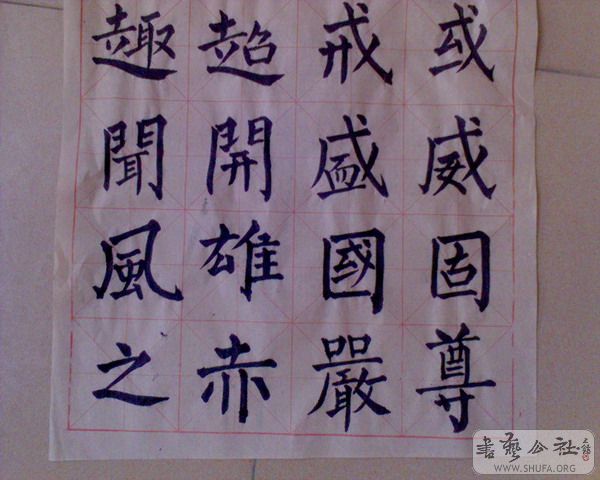 或威固尊
戒盛國嚴
超開雄赤
趣聞風之
書藝公社
WWW.SHUFA.ORG